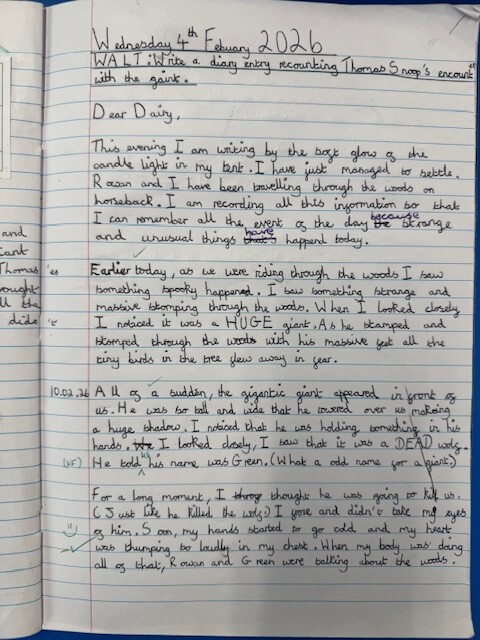 Wednesday 4th Febuary 2026
WALT: Write a diary entry recounting Thomas Snoop's encount
with the gaint.
Dear Dairy,
This evening I am writing by the soft glow of the
candle light in my tent. I have just managed to settle.
Rowan and I have been travelling through the woods on
horseback. I am recording all this information so that
I can remember all the event of the day because strange
and unusual things have happend today.
Earlier today, as we were riding through the woods I saw
something spooky happened. I saw something strange and
massive stomping through the woods. When I looked closely
I noticed it was a HUGE giant. As he stamped and
stomped through the woods with his massive feet all the
tiny birds in the tree flew away in fear.
10.02.26 All of a sudden, the gigantic giant appeared in front of
us. He was so tall and wide that he towered over us making
a huge shadow. I noticed that he was holding something in his
hands. I looked closely, I saw that it was a DEAD wolf.
(VF) He told us his name was Green. (What a odd name for a giant.)
For a long moment, I thought he was going to kill us.
(Just like he killed the wolf.) I and didn't take my eyes
of him. Soon, my hands started to go cold and my heart
was thumping so loudly in my chest. When my body was doing
all of that, Rowan and Green were talking about the woods.
and
Thomas 'es
ought
ll the
dide 't